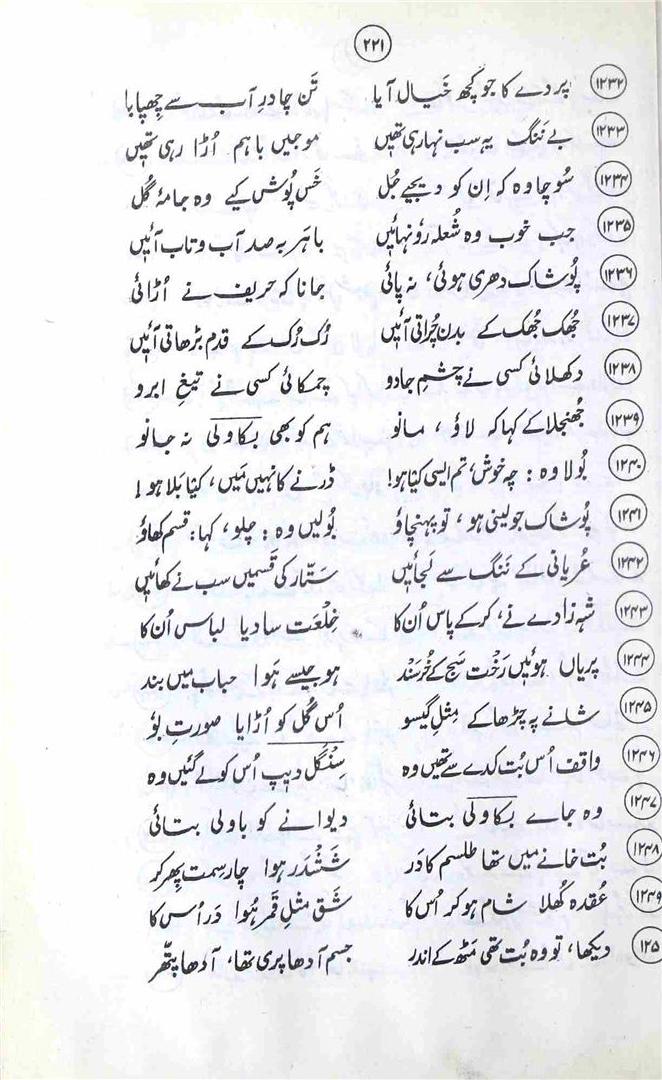 ۲۲۱
۱۲۳۲ پردے کا جو کچھ خَیال آیا تَن چادرِ آب سے چھپایا
۱۲۳۳ بے نَنگ یہ سب نہا رہی تھیں موجیں باہم اُڑا رہی تھیں
۱۲۳۴ سُوچا وہ کہ اِن کو دیجیے جُل خَس پُوش کیے وہ جامۂ گُل
۱۲۳۵ جب خوب وہ شُعلہ رؤ نہائیں باہَر بہ صد آب و تاب آئیں
۱۲۳۶ پُوشاک دھری ہوئی، نہ پائی جانا کہ حریف نے اُڑائی
۱۲۳۷ جُھک جُھک کے بدن چُراتی آئیں رُک رُک کے قدم بڑھاتی آئیں
۱۲۳۸ دکھلائی کسی نے چشمِ جادو چمکائی کسی نے تیغِ ابرو
۱۲۳۹ جُھنجلا کے کہا کہ لاؤ، مانو ہم کو بھی بکاولی نہ جانو
۱۲۴۰ بُولا وہ: چہ خوش، تم ایسی کیا ہو! ڈرنے کا نہیں مَیں، کیا بَلا ہو!
۱۲۴۱ پُوشاک جو لینی ہو، تو پہنچاؤ بُولیں وہ: چلو، کہا: قسم کھاؤ
۱۲۴۲ عُریانی کے نَنگ سے لَجائیں سَتّار کی قَسمیں سب نے کھائیں
۱۲۴۳ شہ زادے نے، کرکے پاس اُن کا خِلْعَت سا دیا لباس اُن کا
۱۲۴۴ پریاں ہوئیں رَخْت سَج کے خُرسَند ہو جیسے ہَوا حباب میں بند
۱۲۴۵ شانے پہ چڑھا کے مِثلِ گیسو اُس گُل کو اُڑایا صورتِ بؤ
۱۲۴۶ واقف اُس بُت کدے سے تھیں وہ سِنْگَل دیپ اُس کو لے گئیں وہ
۱۲۴۷ وہ جاے بکاولی بتائی دیوانے کو باولی بتائی
۱۲۴۸ بُت خانے میں تھا طلسم کا دَر شَشْدَر ہوا چار سمت پِھر کر
۱۲۴۹ عُقدہ کُھلا شام ہو کر اُس کا شَق مثلِ قَمر ہُوا دَر اُس کا
۱۲۵ دیکھا، تو وہ بُت تھی مَٹھ کے اندر جسم آدھا پری تھا، آدھا پتّھر